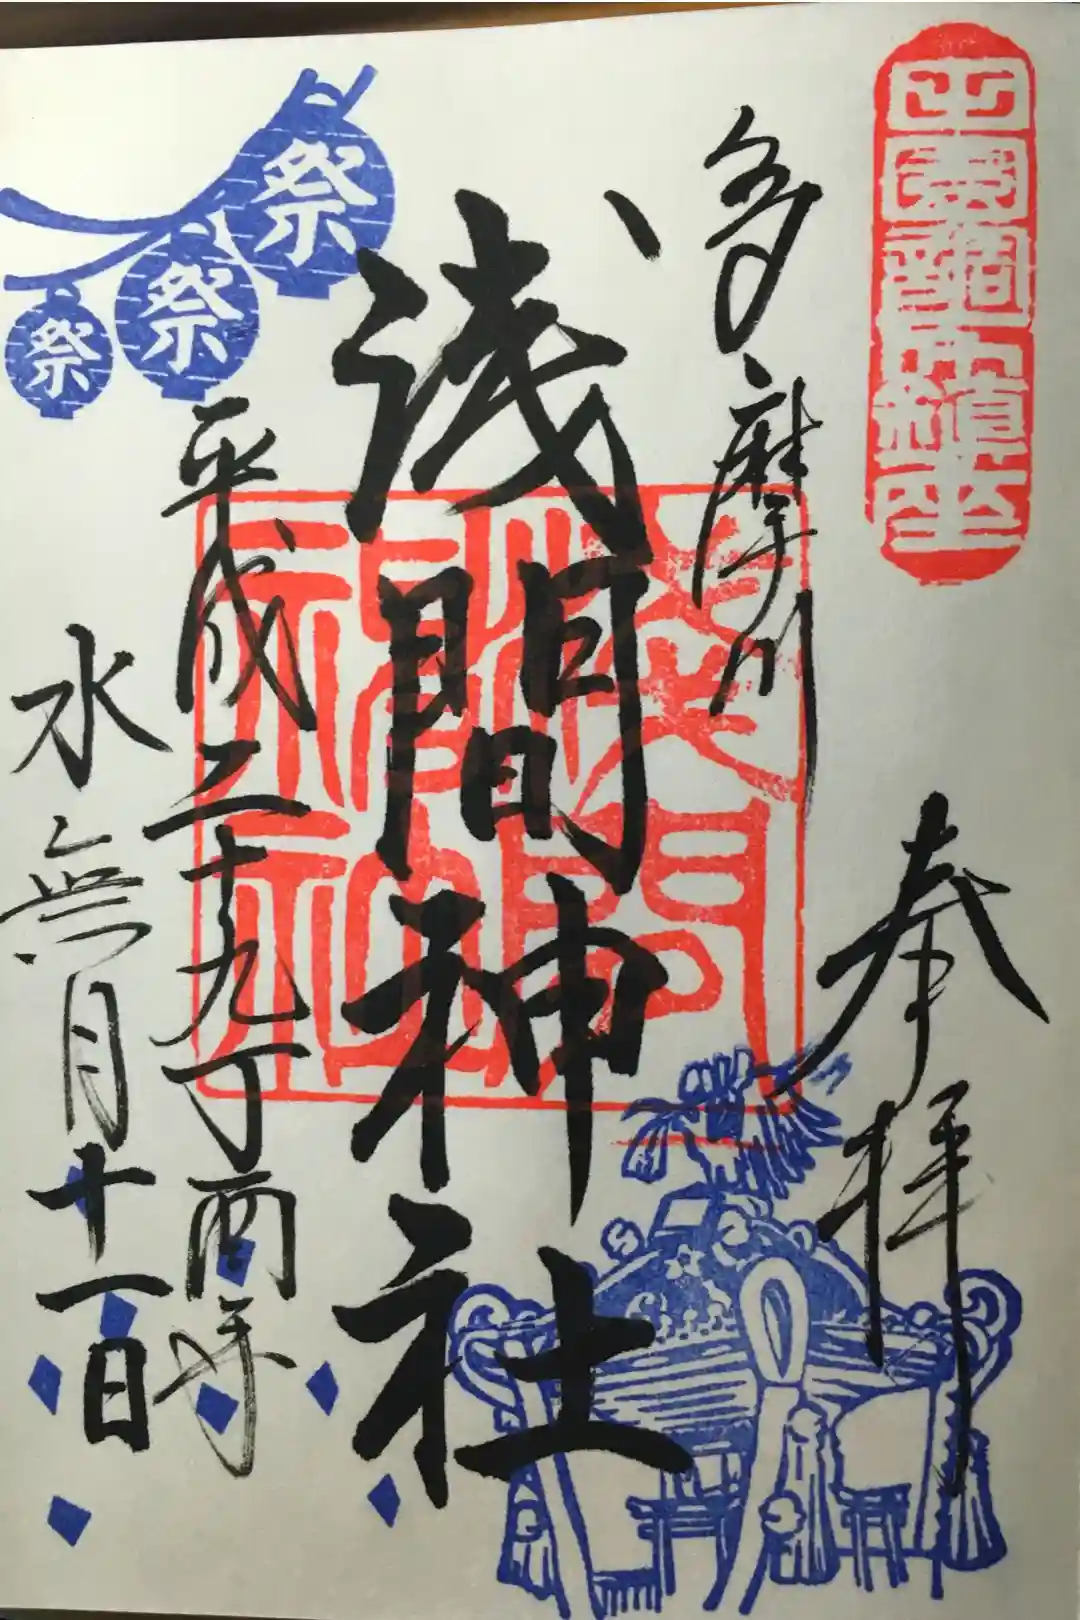 奉拝
多摩川
浅間神社
平成二十九丁酉年
水無月十一日
祭
祭
祭
浅間神社